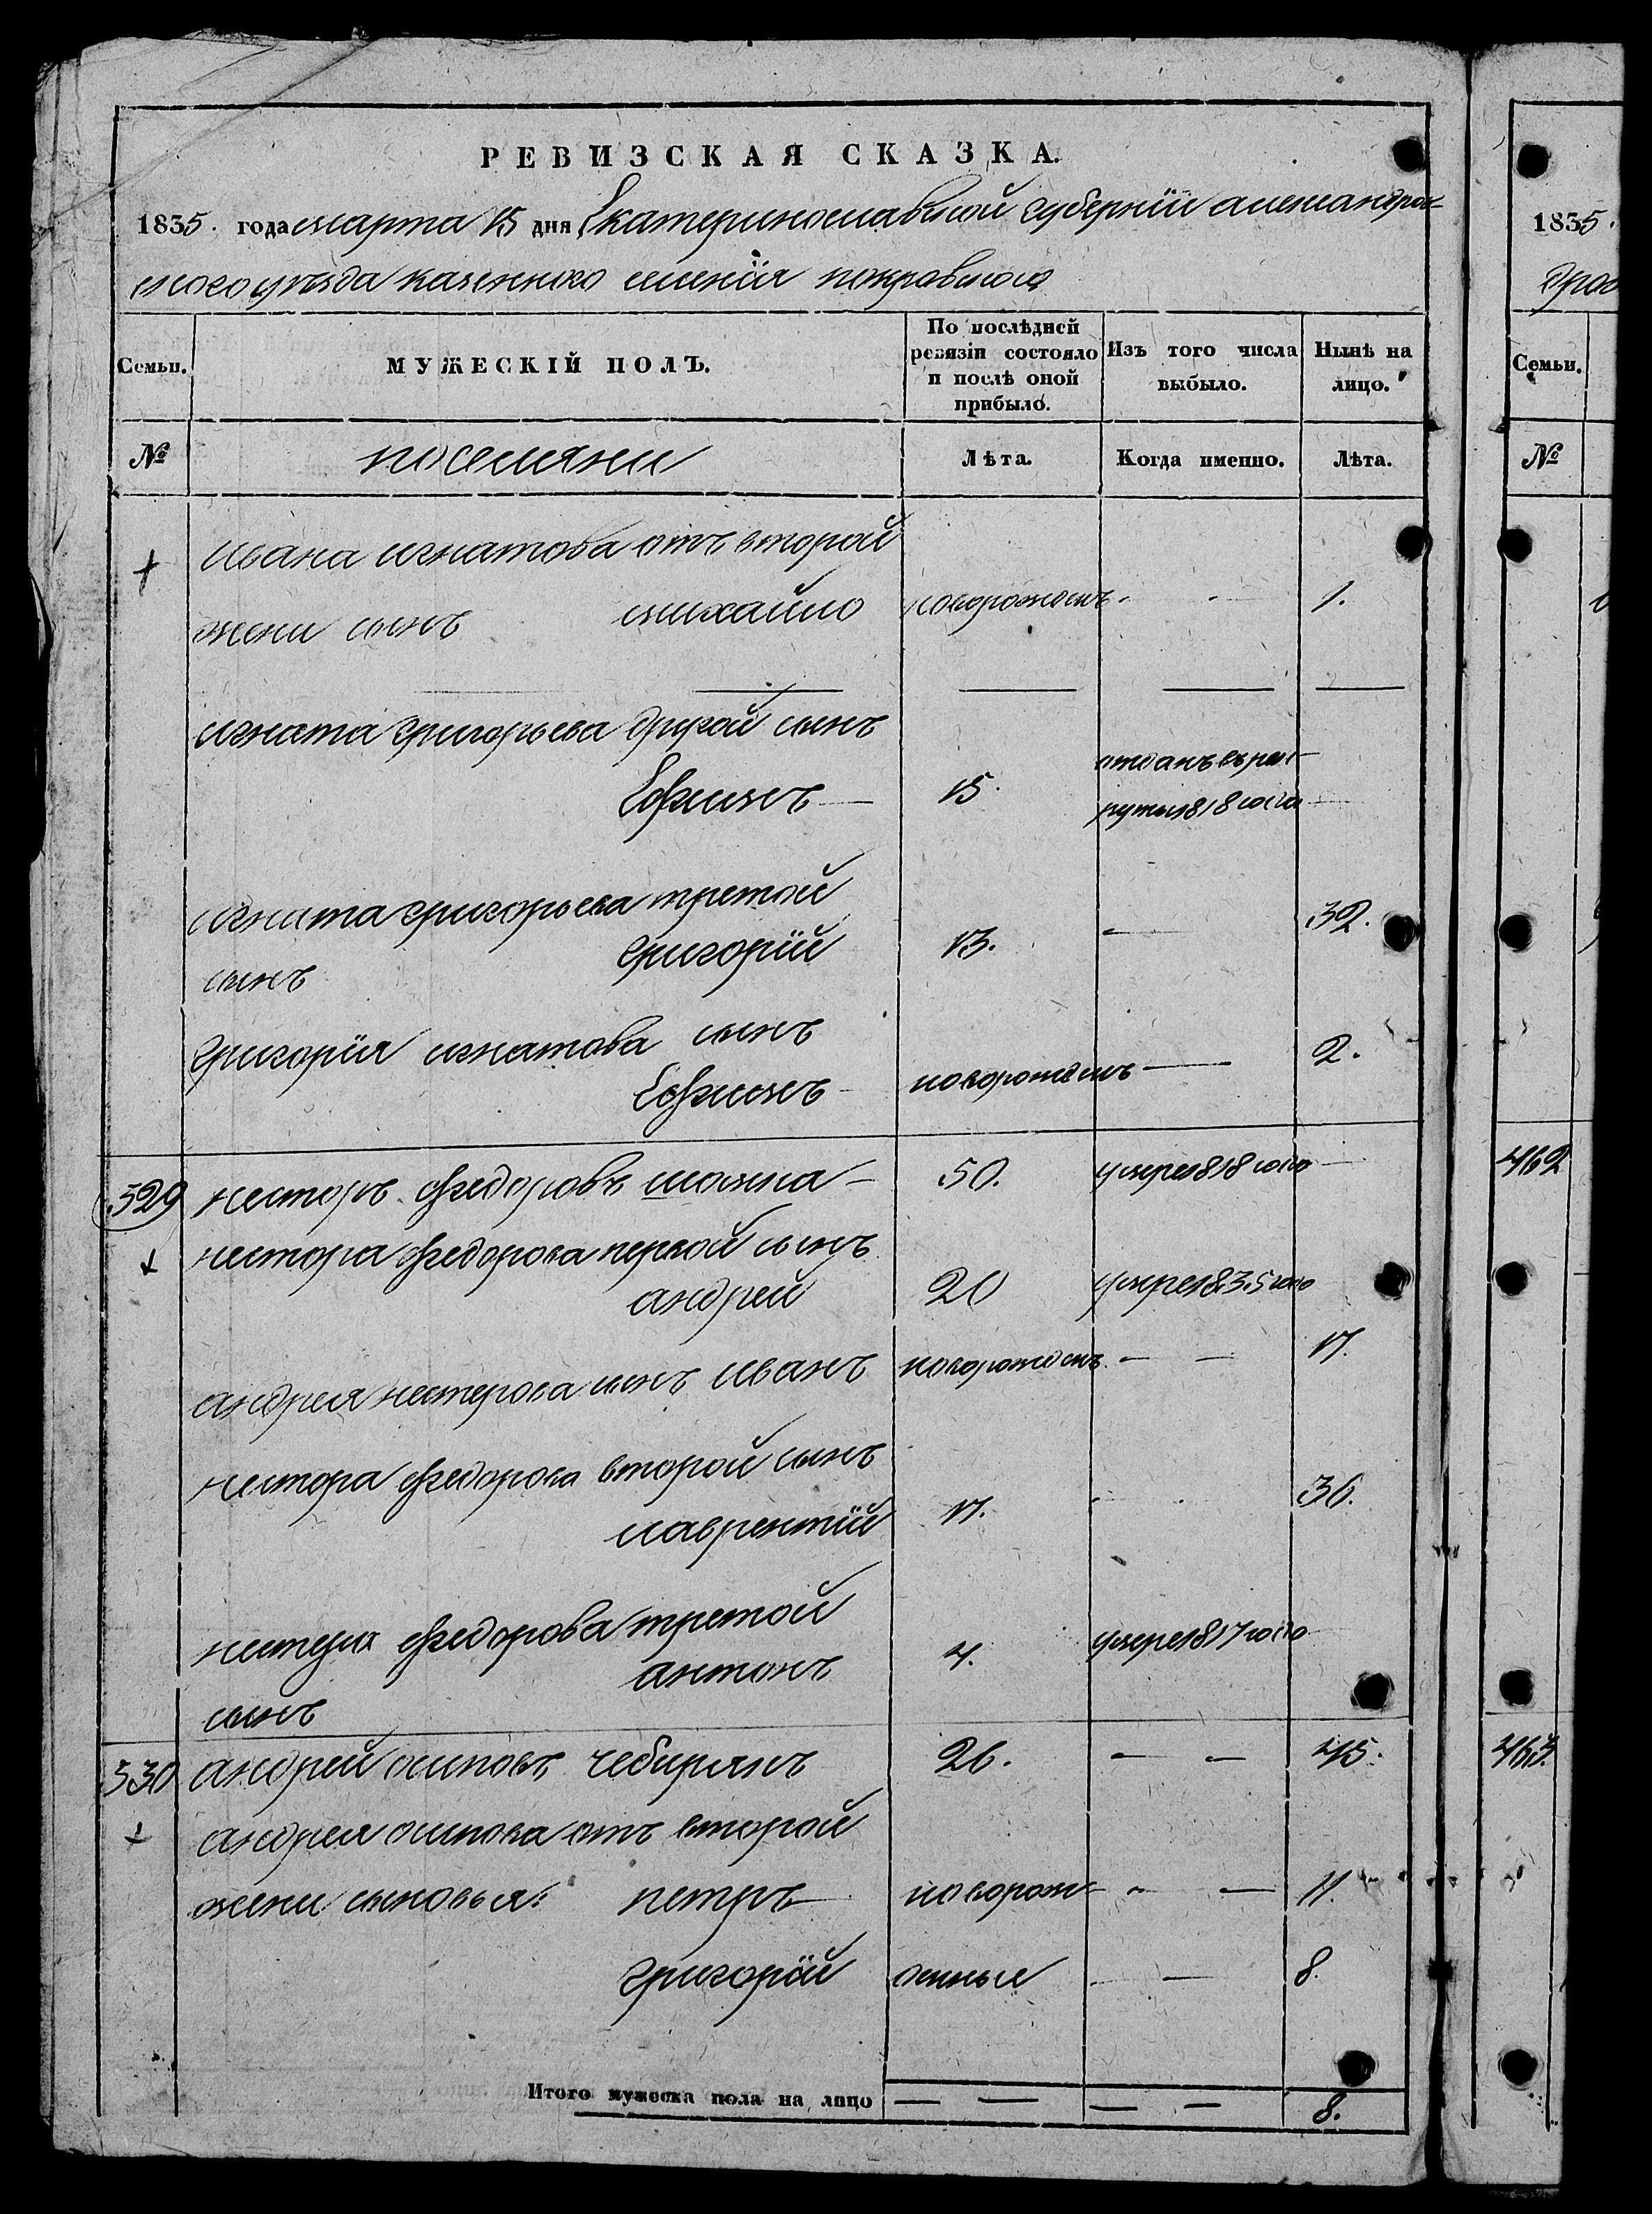 РЕВИЗСКАЯ СКАЗКА.
1835. года марта 15 дня Екатеринославской губернїи александров=
ского уѣзда казенного имѣнїя покровского
Семьи. МУЖЕСКІЙ ПОЛЪ. По послѣдней ревизіи состояло и послѣ оной прибыло. Изъ того числа выбыло. Нынѣ на лицо.
№ поселяни Лѣта. Когда именно. Лѣта.
ивана игнатова отъ второй
жени сынъ михайло новорожденъ - - 1.
игната григорьева другой сынъ
Ефимъ — 15. отданъ въ рек-
руты 1818 года —
игната григорьева третой
сынъ григорїй 13. - — 32.
григорїя игнатова сынъ
Ефимъ новорожденъ — 2.
529 несторъ федоровъ шожна — 50. умре 1818 года —
нестора федорова первой сынъ
андрей 20 умре 1835 года
андрея нестерова сынъ иванъ новорожденъ - — 17.
нестора федорова второй сынъ
лаврентїй 17. - - 36.
нестера федорова третой
сынъ антонъ 4. умре 1817 года
530 андрей осиповъ чебирякъ 26. — — 45.
андрея осипова отъ второй
жени сыновья: петръ — новорож= - — 11.
григорїй денные - — 8.
Итого мужеска пола на лицо — — — — 8.
1835.
дров
Семьи.
№
462
463.